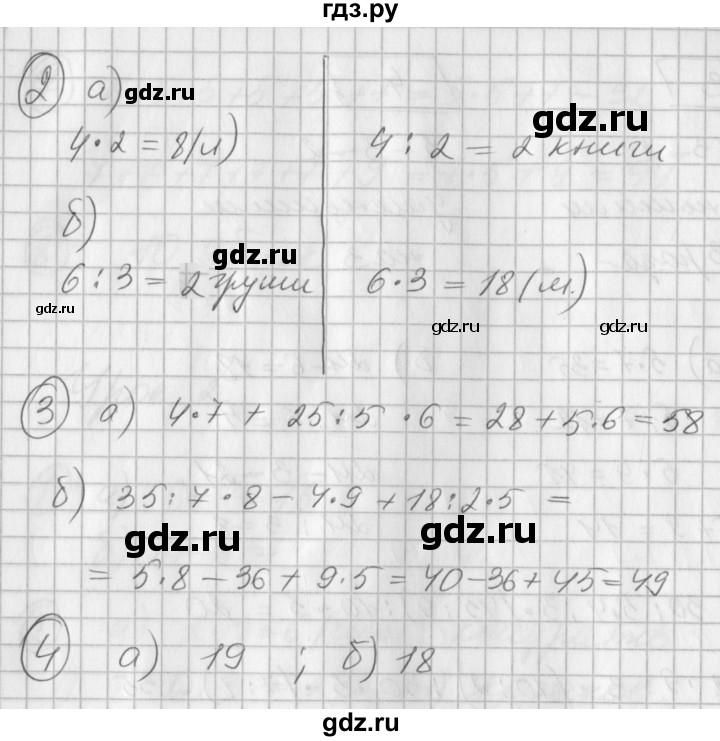 гдз.ру
② а) gdz.ru
4·2 = 8(л)
gdz.ru
4 : 2 = 2 книги
б)
gdz.ru
6 : 3 = 2 груши
gdz.ru
6·3 = 18 (м.)
gdz.ru gdz.ru
③ а) 4·7 + 25:5 ·6 = 28+5·6 = 58
б) 35:7·8 - 4·9 + 18:2·5 =
gdz.ru gdz.ru
= 5·8 - 36 + 9·5 = 40-36+45=49
④ а) 19 ; б) 18
gdz.ru